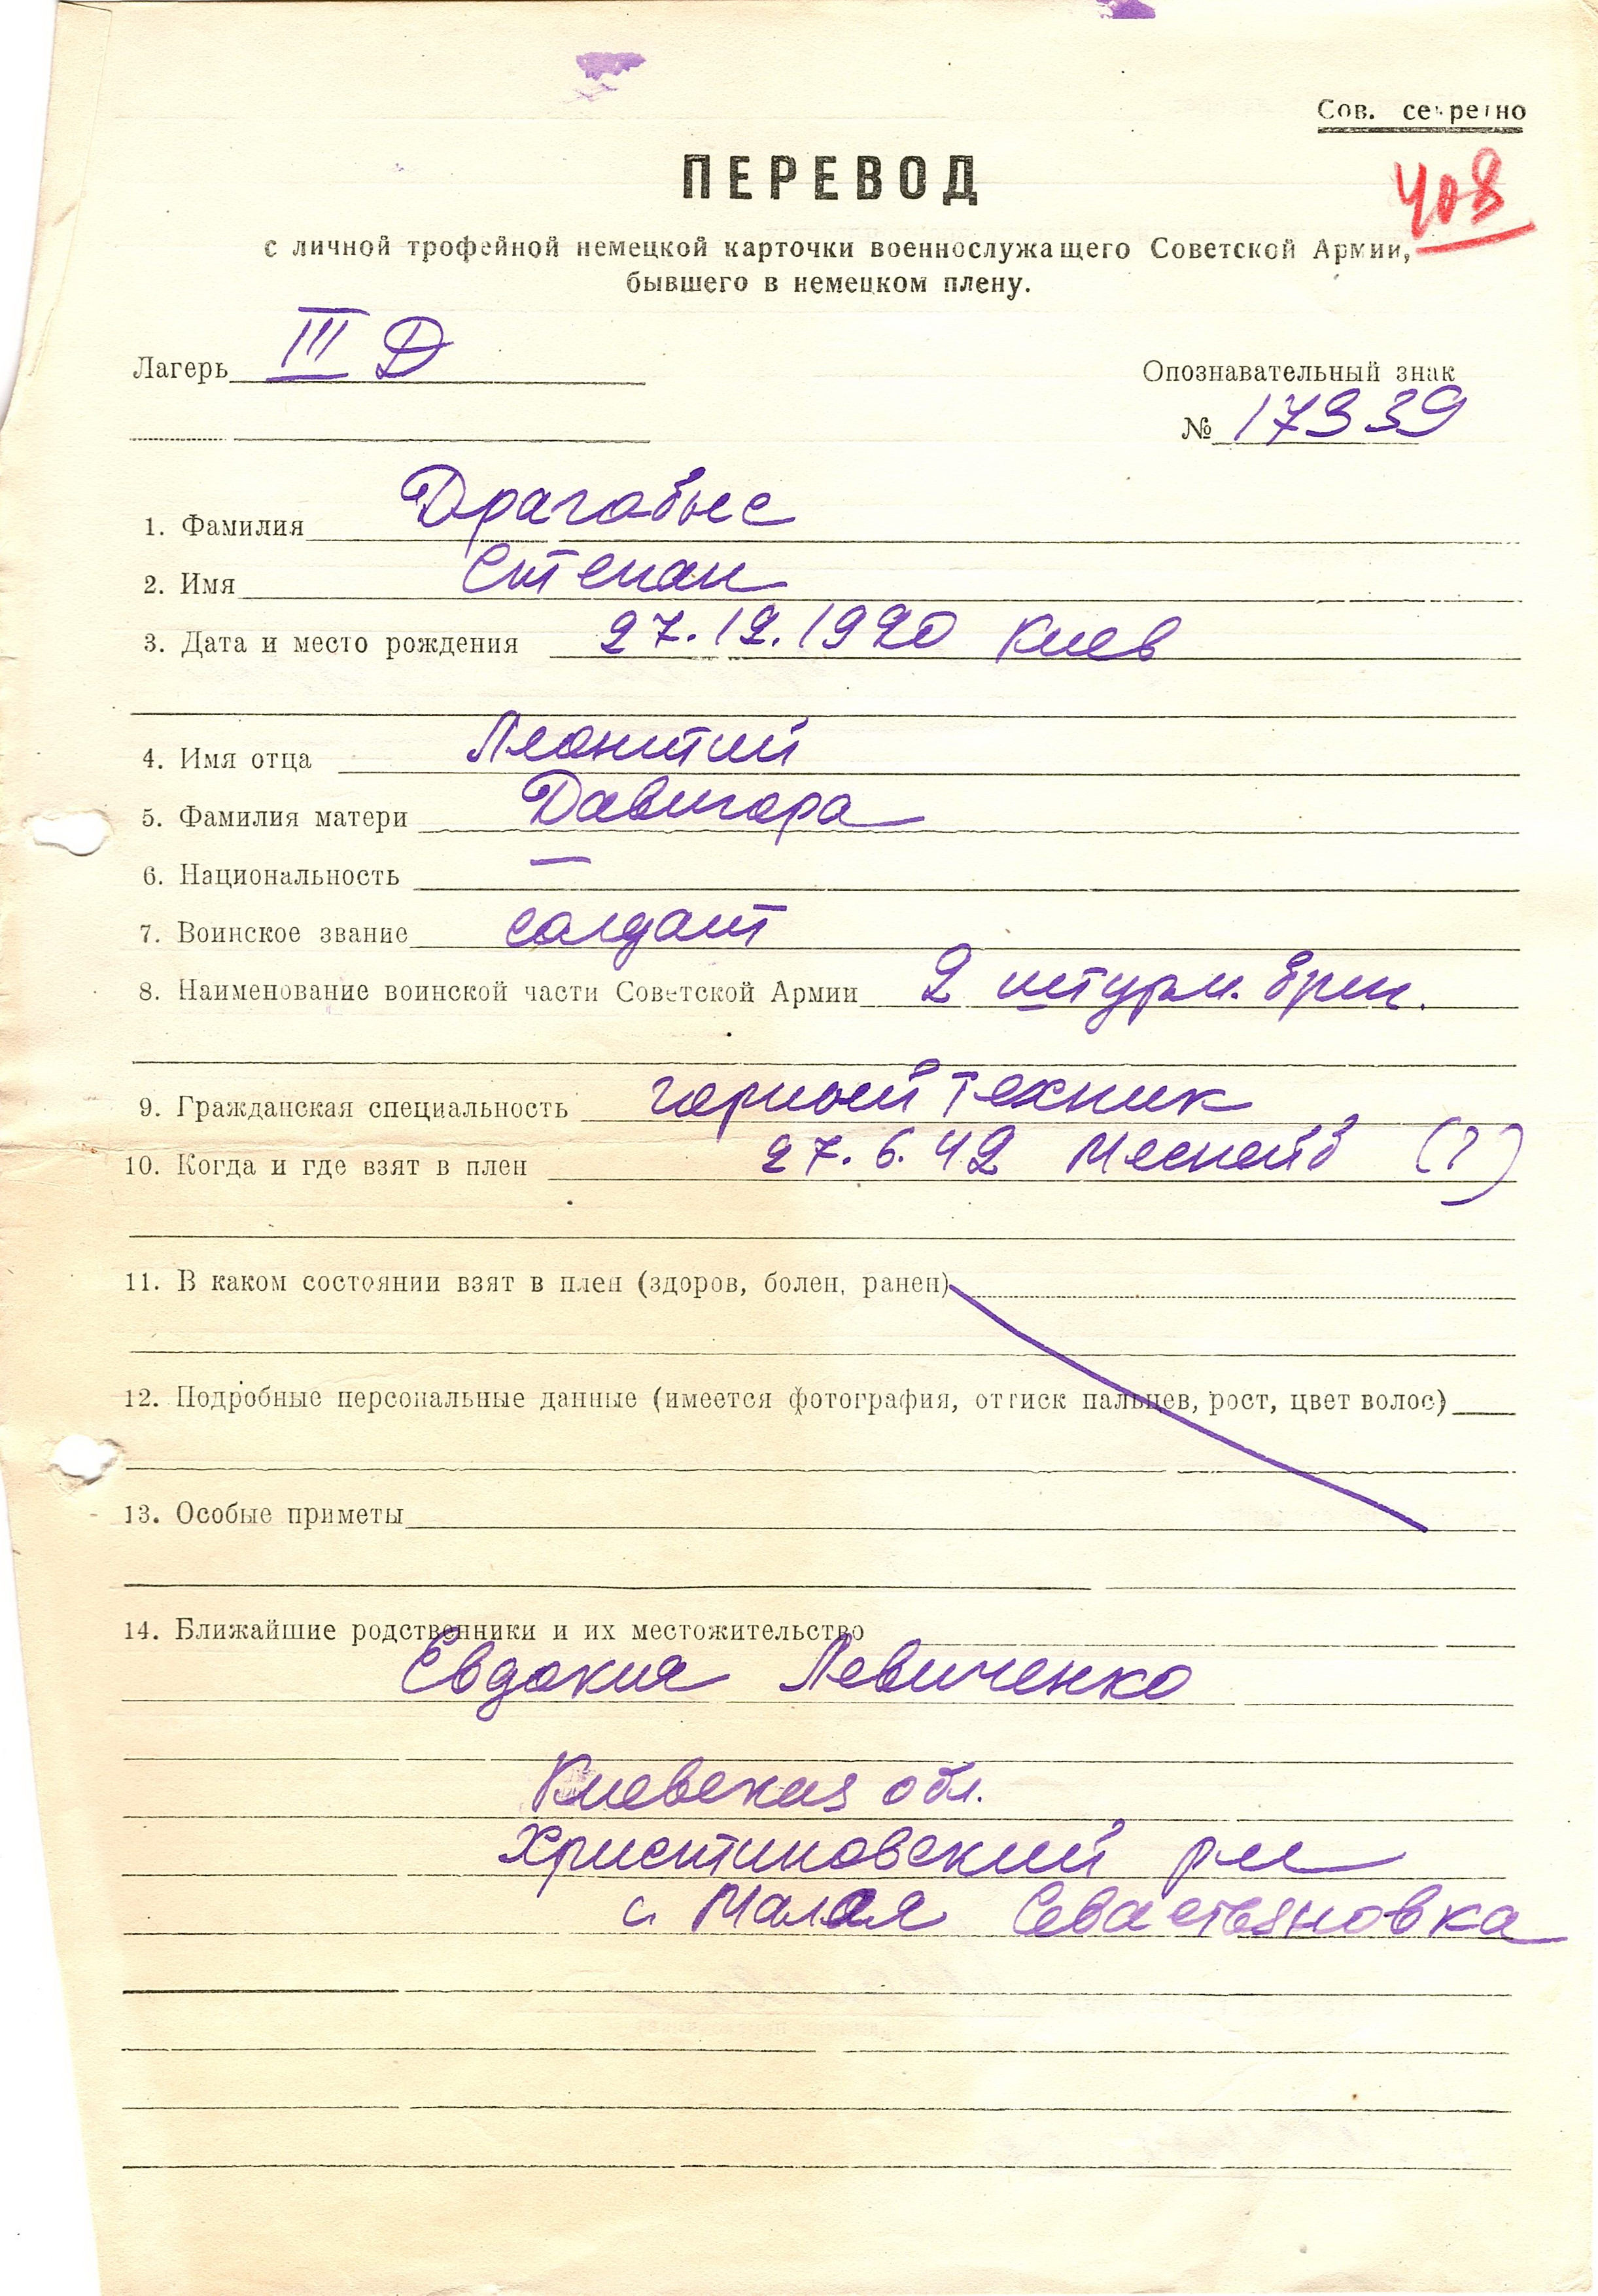 Сов. секретно
408
ПЕРЕВОД
с личной трофейной немецкой карточки военнослужащего Советской Армии,
бывшего в немецком плену.
Лагерь III Д
Опознавательный знак
№ 17339
1. Фамилия Драгобые
2. Имя Степан
3. Дата и место рождения 27.12.1920 Киев
4. Имя отца Леонтий
5. Фамилия матери Давигора
6. Национальность —
7. Воинское звание солдат
8. Наименование воинской части Советской Армии 2 штурм. бриг.
9. Гражданская специальность горный техник
10. Когда и где взят в плен 27.6.42 (?)
11. В каком состоянии взят в плен (здоров, болен, ранен)
12. Подробные персональные данные (имеется фотография, оттиск пальцев, рост, цвет волос)
13. Особые приметы
14. Ближайшие родственники и их местожительство
Евдокия Левиченко
Киевская обл.
Христиновский р-н
с. Малая Севастьяновка